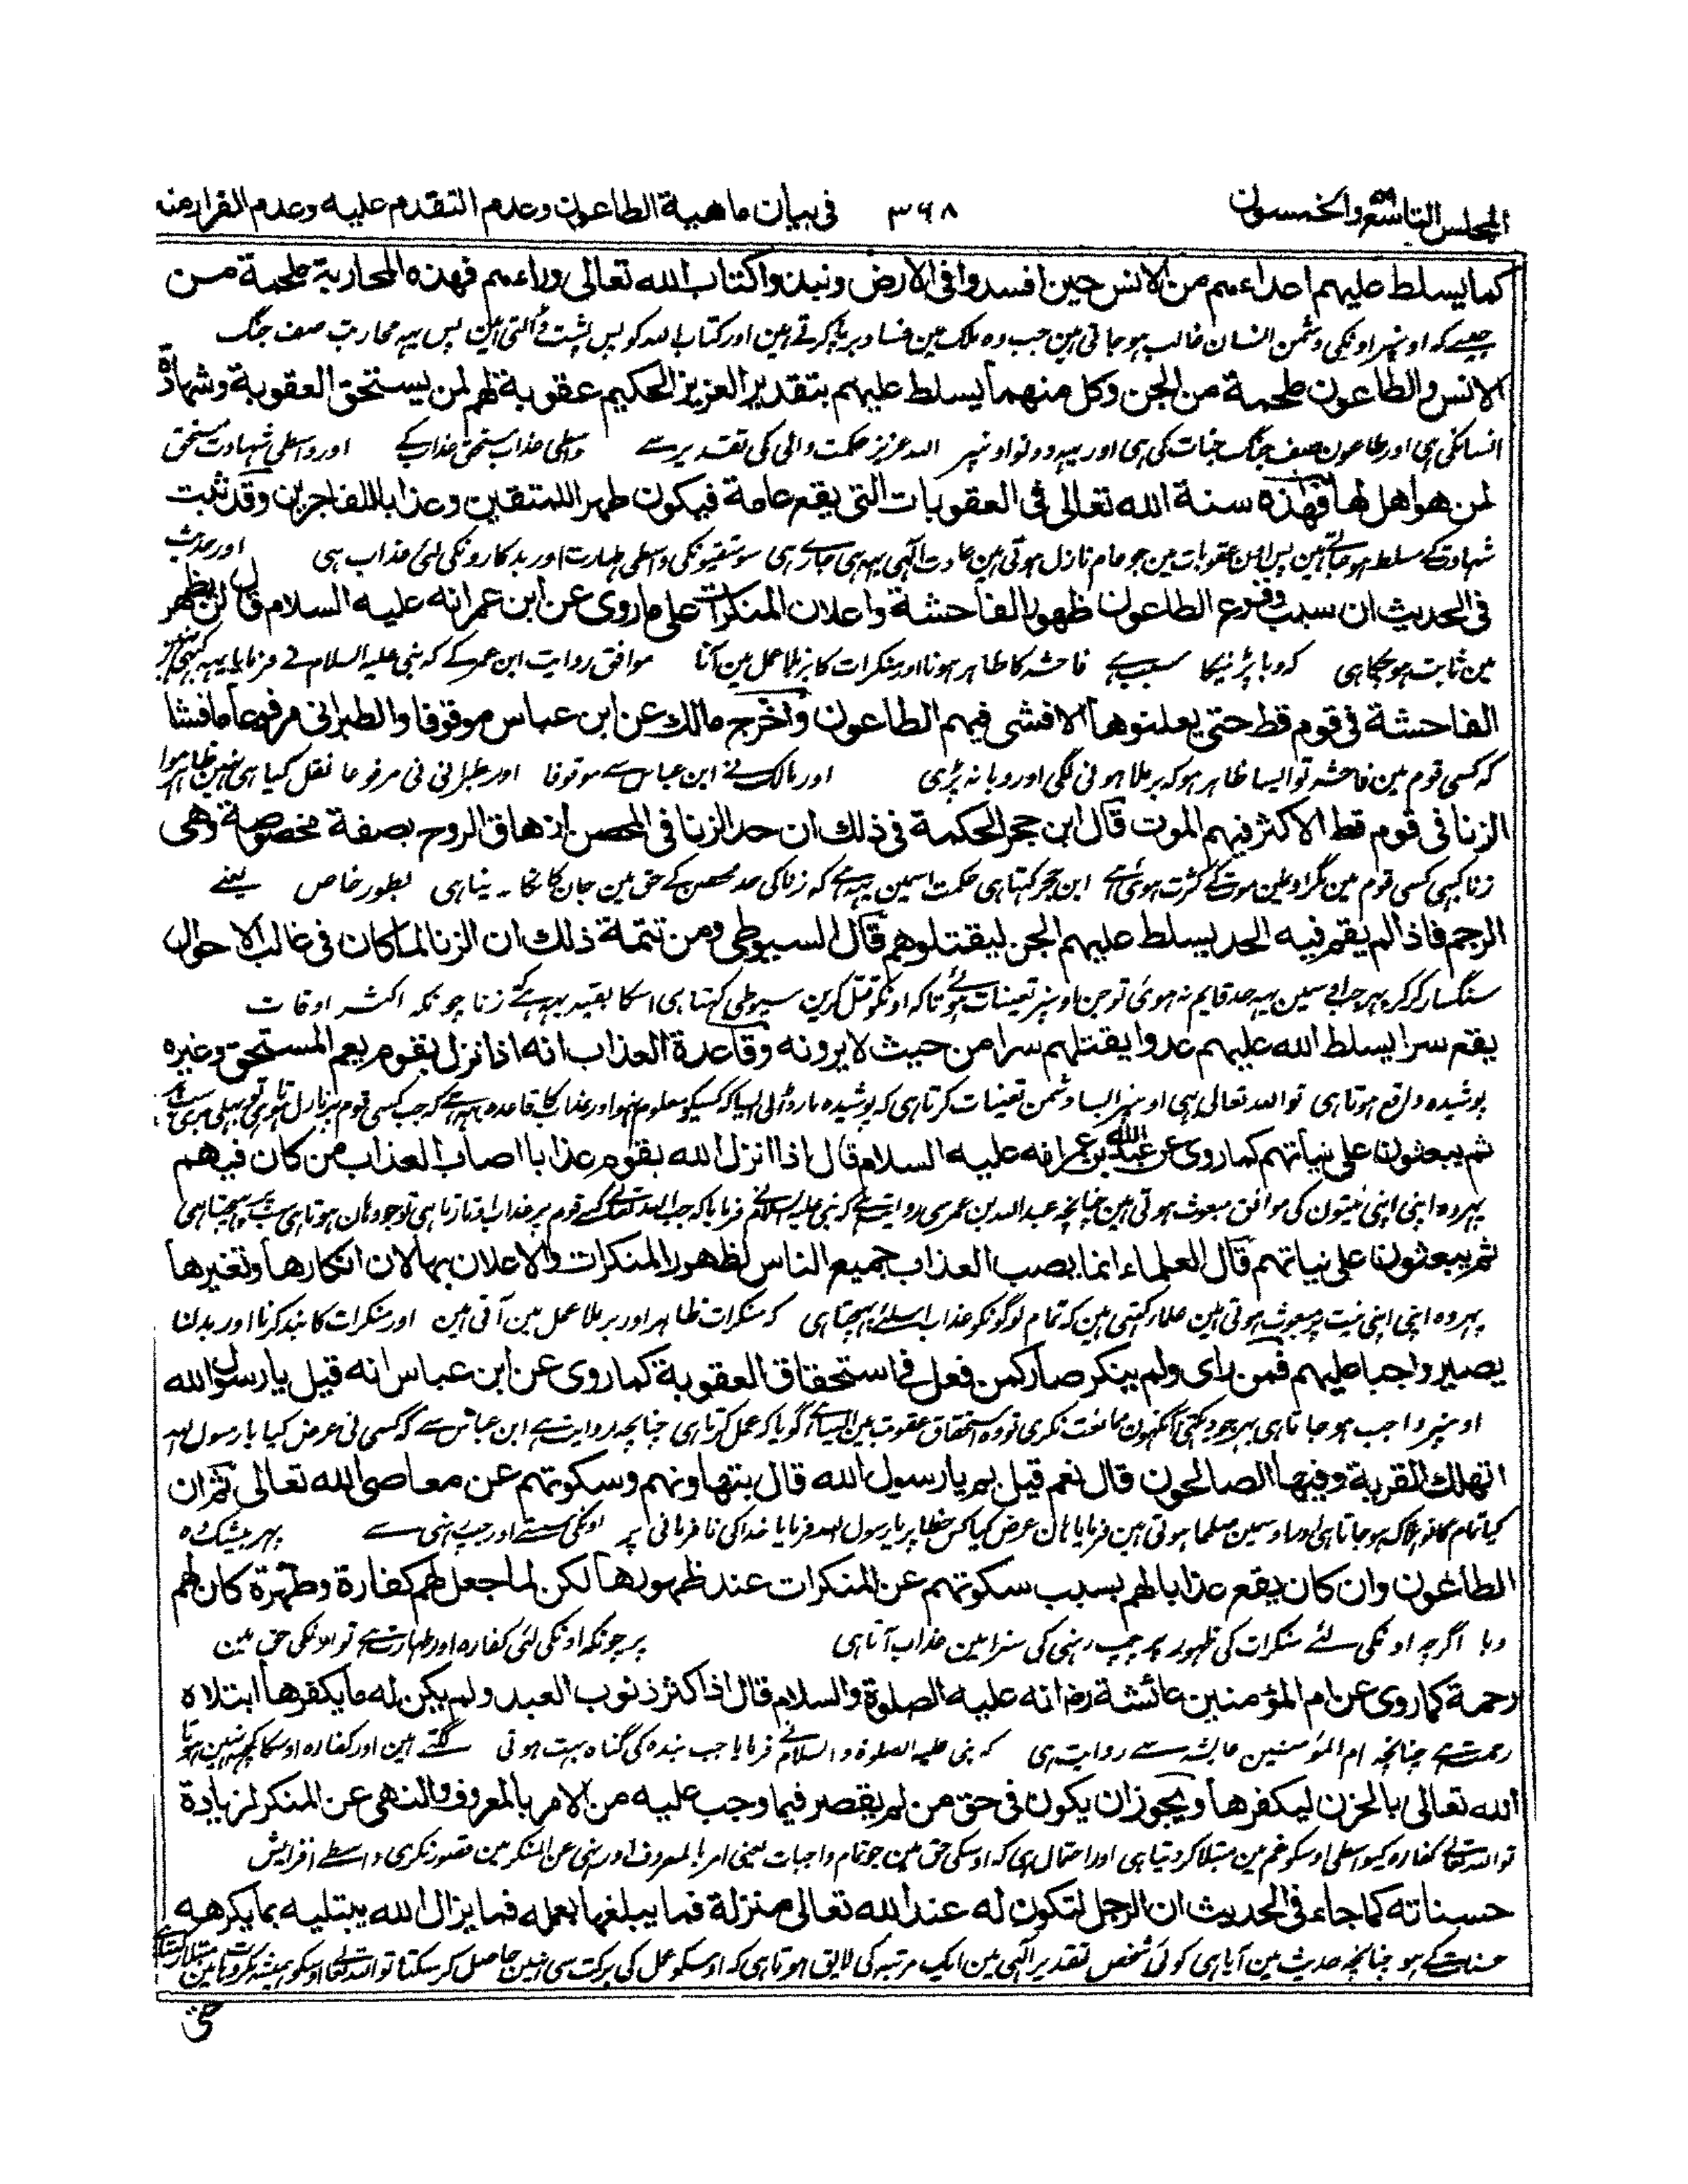 المجلس التاسع والخمسون ٣٦٨ فی بیان ماهیة الطاعون وعدم التقدم علیه وعدم الفرار منه
كما يسلط عليهم اعداءهم من الانس حين افسدوا فى الارض ونبذوا كتاب الله تعالى وراءهم فهذه المحاربة ملحمة من
جیسے کہ اونپر اونکی دشمن انسان غالب ہو جاتی ہین جب وہ ملک مین فساد برپا کرتے ہین اور کتاب اللہ کو پس پشت ڈالتی ہین پس یہہ محاربت صف جنگ
الانس والطاعون ملحمة من الجن وكل منهما يسلط عليهم بتقدير العزيز الحكيم عقوبة لهم لمن يستحق العقوبة وشهادة
انسانکی ہی اور طاعون صف جنگ جنات کی ہی اور یہہ دونو اونپر اللہ عزیز حکمت والی کی تقدیر سے واسطی عذاب مستحق عذاب کے اور واسطی شہادت مستحق
لمن هو اهل لها فهذه سنة الله تعالى فى العقوبات التى يقع عامة فيكون طهرا للمتقين وعذابا للفاجرين وقد ثبت
شہادت کے مسلط ہو جاتے ہین پس ان عقوبات مین جو عام نازل ہوتی ہین عادت الٰہی یہہ ہی جاری ہی سو متقیونکی واسطی طہارت اور بدکارونکی لئی عذاب ہی اور حدیث
فى الحديث ان سبب وقوع الطاعون ظهور الفاحشة واعلان المنكرات على ما روى عن ابن عمر انه عليه السلام قال لن يظهر
مین ثابت ہو چکا ہی کہ وبا پڑنیکا سبب ہے فاحشہ کا ظاہر ہونا اور منکرات کا برملا عمل مین آنا موافق روایت ابن عمر کے کہ نبی علیہ السلام نے فرمایا یہہ کبہی نہین
الفاحشة فى قوم قط حتى يعلنوها الا فشى فيهم الطاعون واخرج مالك عن ابن عباس موقوفا والطبرانى مرفوعا ما فشا
کہ کسی قوم مین فاحشہ تو ایسا ظاہر ہو کہ برملا ہونی لگی اور وبا نہ پڑی اور مالک نے ابن عباس سے موقوفا اور طبرانی نی مرفوعا نقل کیا ہی نہین ظاہر ہوا
الزنا فى قوم قط الا كثر فيهم الموت قال ابن حجر الحكمة فى ذلك ان حد الزنا فى المحصن ازهاق الروح بصفة مخصوصة وهى
زنا کبہی کسی قوم مین مگر اونمین موت کے کثرت ہوئی ہے ابن حجر کہتا ہی حکمت اسمین یہہ ہے کہ زنا کی حد محصن کے حق مین جان کا بطور خاص یعنے
الرجم فاذا لم يقم فيه الحد يسلط عليهم الجن ليقتلوهم قال السيوطى ومن تتمة ذلك ان الزنا لما كان فى غالب الاحوال
سنگسار کر کر پہر جب اسمین یہہ حد قایم نہ ہوئی تو جن اونپر تعینات ہوئے تا کہ اونکو قتل کرین سیوطی کہتا ہی اسکا بقیہ یہہ ہے کہ زنا چونکہ اکثر اوقات
يقع سرا يسلط الله عليهم عدوا يقتلهم سرا من حيث لا يرونه وقاعدة العذاب انه اذا نزل بقوم يعم المستحق وغيره
پوشیدہ واقع ہوتا ہی تو اللہ تعالی بہی اونپر ایسا دشمن تعینات کرتا ہی کہ پوشیدہ مار ڈالی ایسا کہ کسیکو معلوم نہو اور عذاب کا قاعدہ یہہ ہے کہ جب کسی قوم پر نازل
ثم يبعثون على نياتهم كما روى عن عبد الله بن عمر انه عليه السلام قال اذا انزل الله بقوم عذابا اصاب العذاب من كان فيهم
پہر وہ اپنی اپنی نیتون کی موافق مبعوث ہوتی ہین چنانچہ عبداللہ بن عمر سی روایت ہے کہ نبی علیہ السلام نے فرمایا کہ جب اللہ تعالے کسی قوم پر عذاب اوتارتا ہی تو جو وہان ہوتا ہی سب کو پہنچتا ہی
ثم يبعثون على نياتهم قال العلماء انما يصب العذاب جميع الناس لظهور المنكرات والاعلان بها لان انكارها وتغيرها
پہر وہ اپنی اپنی نیت پر مبعوث ہوتی ہین علماء کہتی ہین کہ تمام لوگونکو عذاب اسلئے پہنچتا ہی کہ منکرات ظاہر اور برملا عمل مین آتی ہین اور منکرات کا بند کرنا اور بدلنا
يصير واجبا عليهم فمن راى ولم ينكر صار كمن فعل فى استحقاق العقوبة كما روى عن ابن عباس انه قيل يا رسول الله
اونپر واجب ہو جاتا ہی پہر جو دیکہتی آنکہون ممانعت نکری تو وہ استحقاق عقوبت مین ایسا ہے گویا کہ عمل کرتا ہی چنانچہ روایت ہے ابن عباس سے کہ کسی نی عرض کیا یا رسول اللہ
اتهلك القرية وفيها الصالحون قال نعم قيل بم يا رسول الله قال بتهاونهم وسكوتهم عن معاصى الله تعالى ثم ان
کیا تمام گانو ہلاک ہو جاتا ہی اور اوسمین صلحا ہوتی ہین فرمایا ہان عرض کیا کس خطا پر یا رسول اللہ فرمایا خدا کی نافرمانی پر اونکی سستی اور چپ رہنی سے پہر بیشک وہ
الطاعون وان كان يقع عذابا لهم بسبب سكوتهم عن المنكرات عند ظهورها لكن لما جعل لهم كفارة وطهرة كان لهم
وبا اگرچہ اونکی لئے منکرات کی ظہور پر چپ رہنی کی سزا مین عذاب آتا ہی پر چونکہ اونکی لئی کفارہ اور طہارت ہے تو اونکی حق مین
رحمة كما روى عن ام المؤمنين عائشة رض انه عليه الصلوة والسلام قال اذا كثر ذنوب العبد ولم يكن له ما يكفرها ابتلاه
رحمت ہے چنانچہ ام المؤمنین عایشہ سے روایت ہی کہ نبی علیہ الصلوۃ والسلام نے فرمایا جب بندہ کی گناہ بہت ہوتی لگتے ہین اور کفارہ اوسکا کچہہ نہین ہوتا
الله تعالى بالحزن ليكفرها ويجوز ان يكون فى حق من لم يقصر فيما وجب عليه من الامر بالمعروف والنهى عن المنكر لزيادة
تو اللہ تعالے کفارہ کیواسطی اوسکو غم مین مبتلا کر دیتا ہی اور احتمال ہی کہ اوسکی حق مین جو تمام واجبات یعنی امر بالمعروف اور نہی عن المنکر مین قصور نکری واسطے افزایش
حسناته كما جاء فى الحديث ان الرجل لتكون له عند الله تعالى منزلة فما يبلغها بعمله فما يزال الله يبتليه بما يكرهه
حسنات کے ہو چنانچہ حدیث مین آیا ہی کوئی شخص تقدیر الٰہی مین ایک مرتبہ کی لایق ہوتا ہی کہ اوسکو عمل کی برکت سی نہین حاصل کر سکتا تو اللہ تعالے اوسکو ہمیشہ مکروہات مین مبتلا
حتى